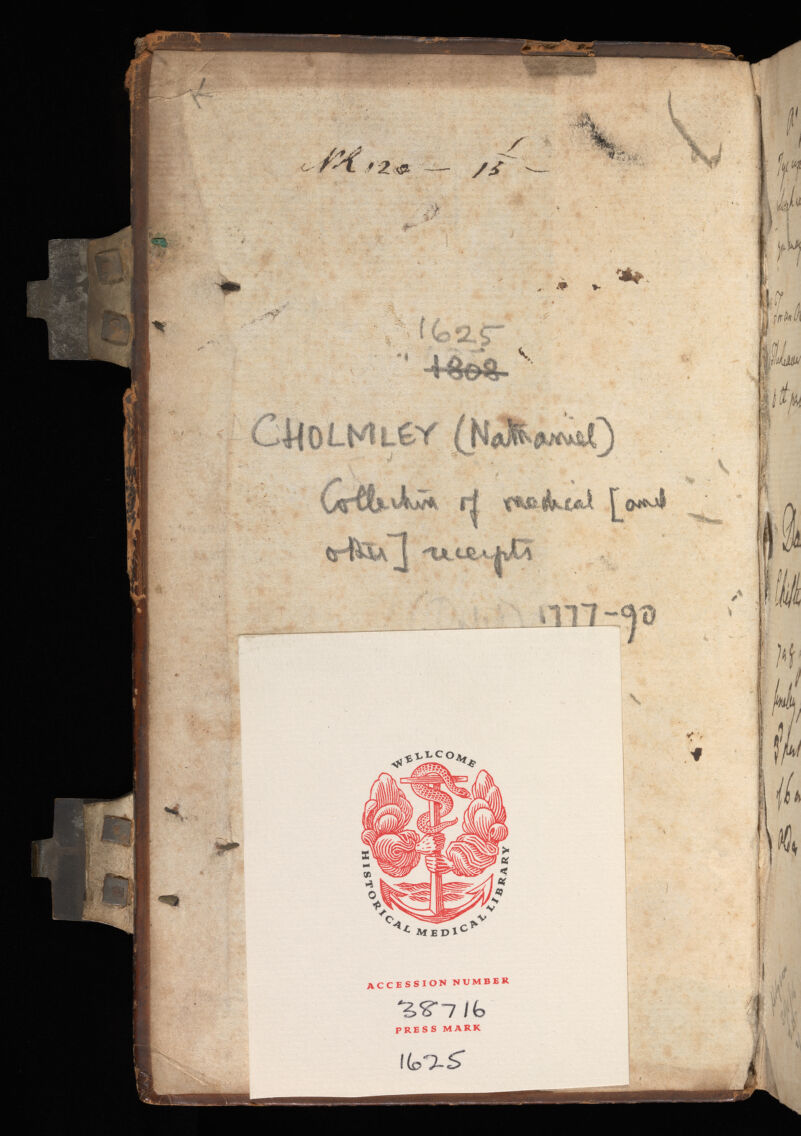 120 — 15 —
1625
1808
CHOLMLEY (Nathaniel)
Collection of medical [and
other] receipts
1777-90
WELLCOME
HISTORICAL MEDICAL LIBRARY
ACCESSION NUMBER
38716
PRESS MARK
1625